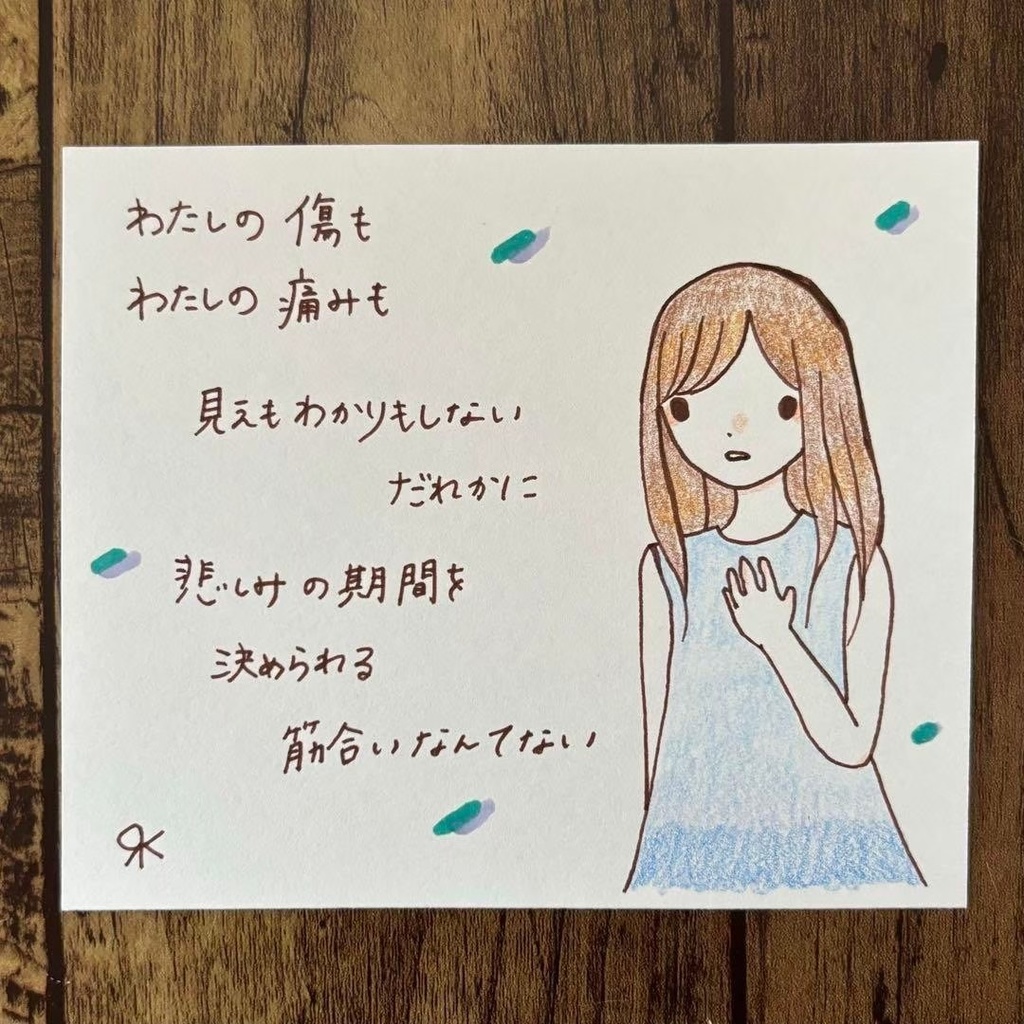 わたしの 傷も
わたしの 痛みも
見えもわかりもしない
だれかに
悲しみの期間を
決められる
筋合いなんてない
RK